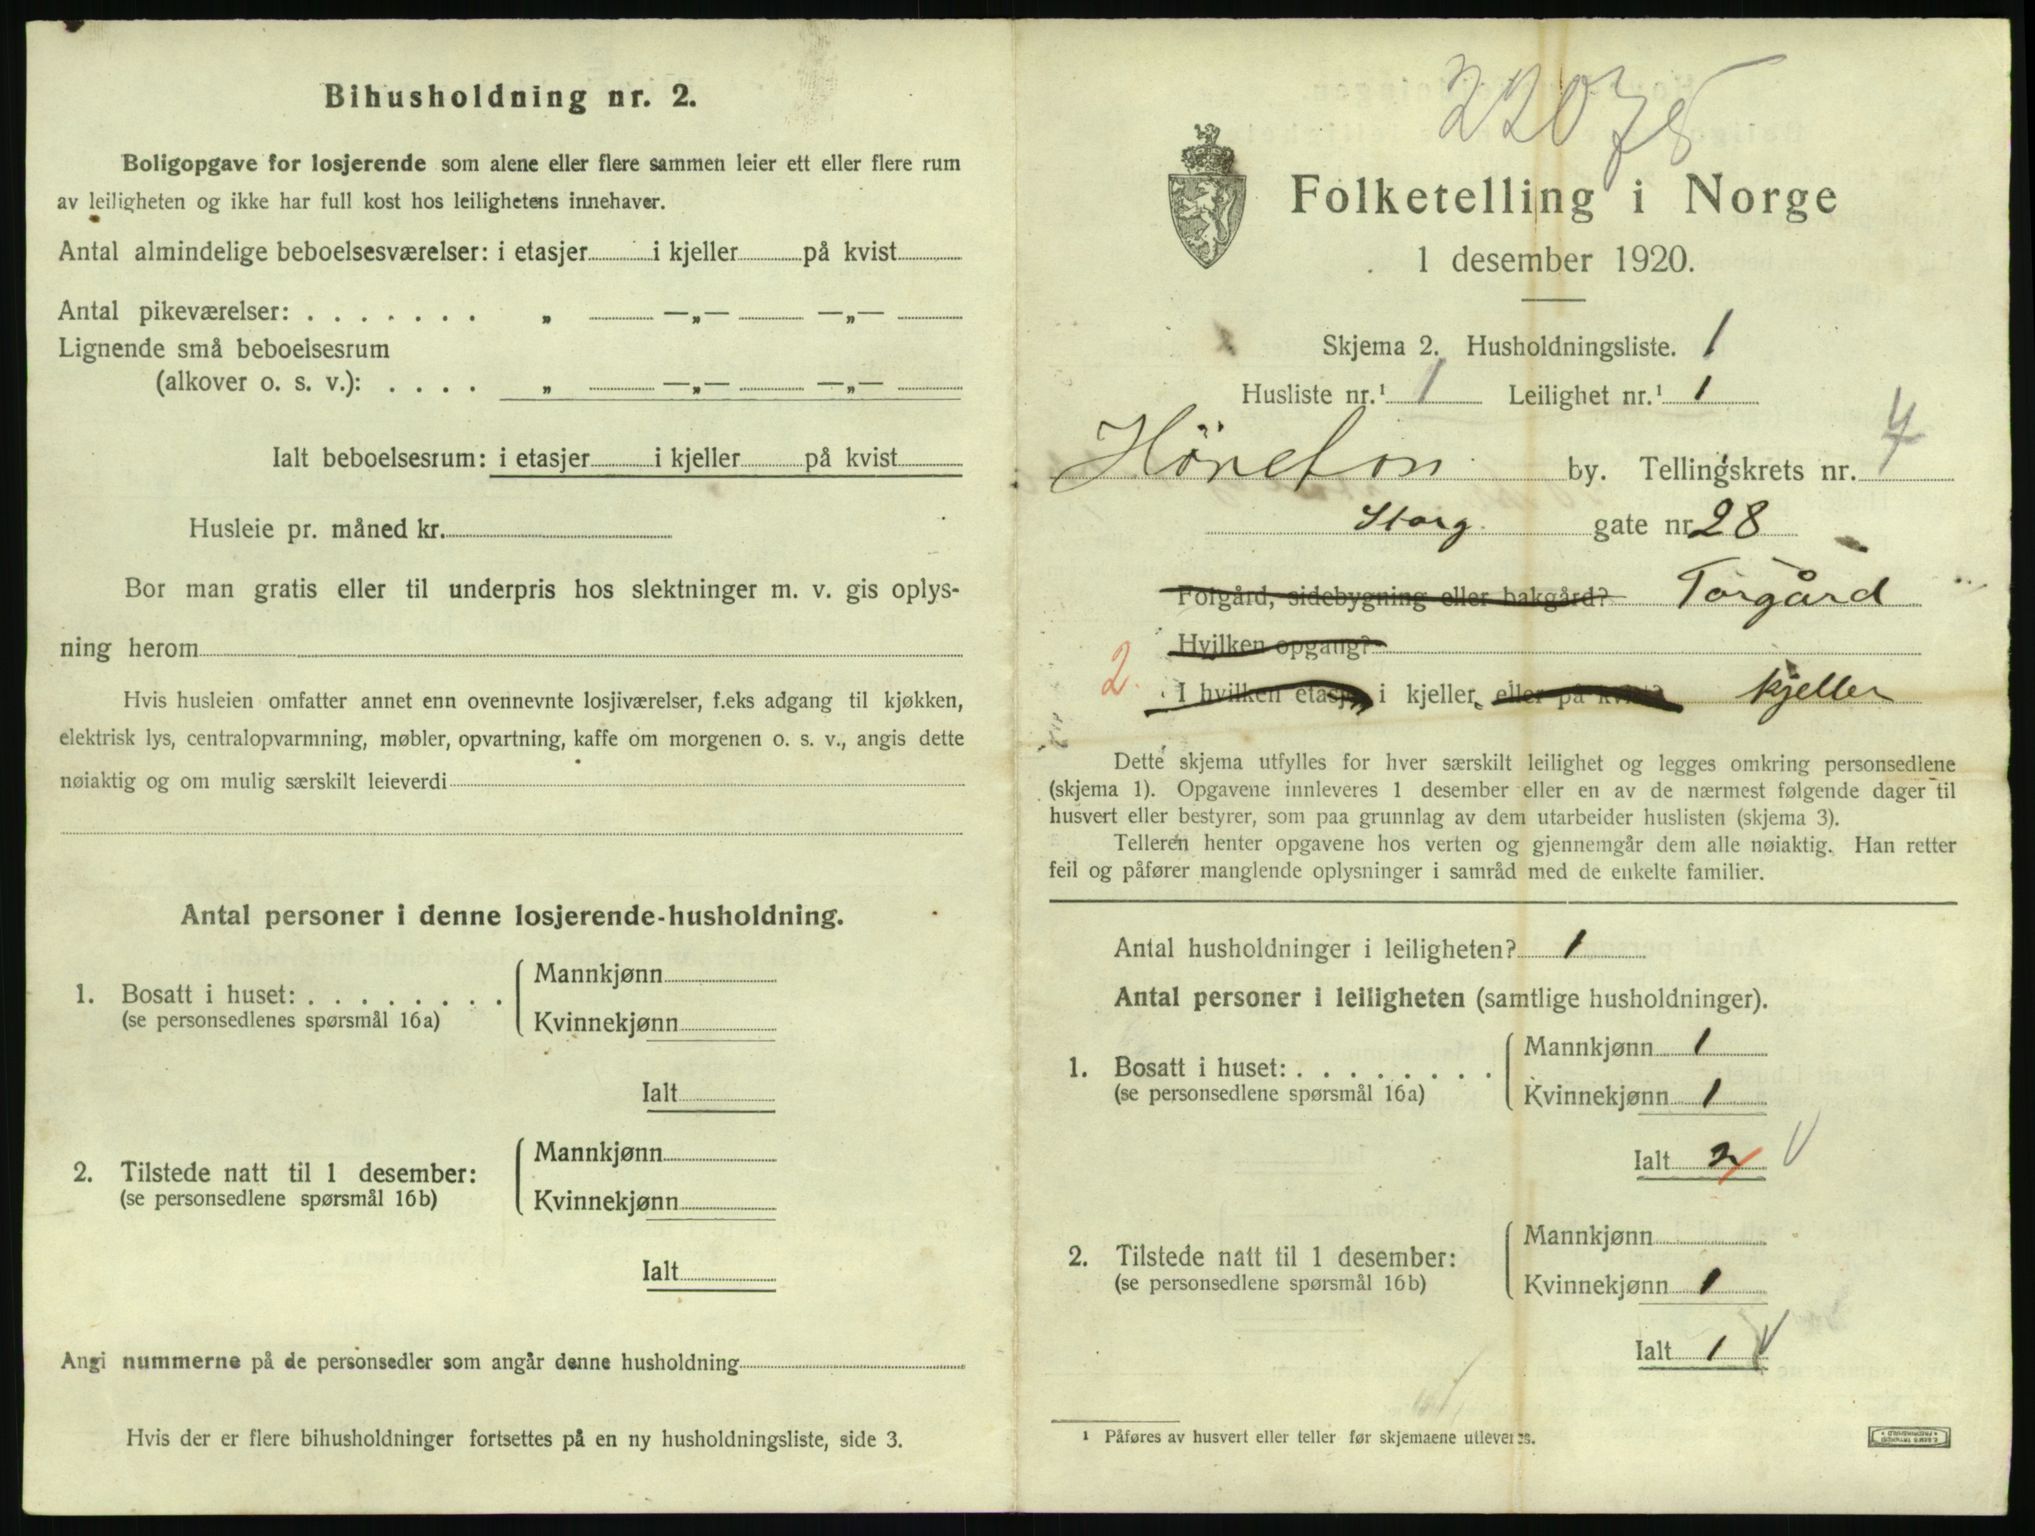 Bihusholdning nr. 2.
Boligopgave for losjerende som alene eller flere sammen leier ett eller flere rum
av leiligheten og ikke har full kost hos leilighetens innehaver.
Antal almindelige beboelsesværelser: i etasjer i kjeller på kvist
Antal pikeværelser: . . . . . . . „ —„— —„—
Lignende små beboelsesrum
(alkover o. s. v.): . . . . „ —„— —„—
Ialt beboelsesrum: i etasjer i kjeller på kvist
Husleie pr. måned kr.
Bor man gratis eller til underpris hos slektninger m. v. gis oplys-
ning herom
Hvis husleien omfatter annet enn ovennevnte losjiværelser, f.eks adgang til kjøkken,
elektrisk lys, centralopvarmning, møbler, opvartning, kaffe om morgenen o. s. v., angis dette
nøiaktig og om mulig særskilt leieverdi
Antal personer i denne losjerende-husholdning.
1. Bosatt i huset: . . . . . . . .
(se personsedlenes spørsmål 16a)
Mannkjønn
Kvinnekjønn
Ialt
2. Tilstede natt til 1 desember:
(se personsedlene spørsmål 16b)
Mannkjønn
Kvinnekjønn
Ialt
Angi nummerne på de personsedler som angår denne husholdning
Hvis der er flere bihusholdninger fortsettes på en ny husholdningsliste, side 3.
22078
Folketelling i Norge
1 desember 1920.
Skjema 2. Husholdningsliste. 1
Husliste nr.¹ 1 Leilighet nr.¹ 1
Hönefon by. Tellingskrets nr. 4
Storg gate nr 28
Forgård, sidebygning eller bakgård? Forgård
Hvilken opgang?
2. I hvilken etasje, i kjeller, eller på kvist? kjeller
Dette skjema utfylles for hver særskilt leilighet og legges omkring personsedlene
(skjema 1). Opgavene innleveres 1 desember eller en av de nærmest følgende dager til
husvert eller bestyrer, som paa grunnlag av dem utarbeider huslisten (skjema 3).
Telleren henter opgavene hos verten og gjennemgår dem alle nøiaktig. Han retter
feil og påfører manglende oplysninger i samråd med de enkelte familier.
Antal husholdninger i leiligheten? 1
Antal personer i leiligheten (samtlige husholdninger).
1. Bosatt i huset: . . . . . . . .
(se personsedlene spørsmål 16a)
Mannkjønn 1
Kvinnekjønn 1
Ialt 2
2. Tilstede natt til 1 desember:
(se personsedlene spørsmål 16b)
Mannkjønn
Kvinnekjønn 1
Ialt 1
¹ Påføres av husvert eller teller før skjemaene utleveres.